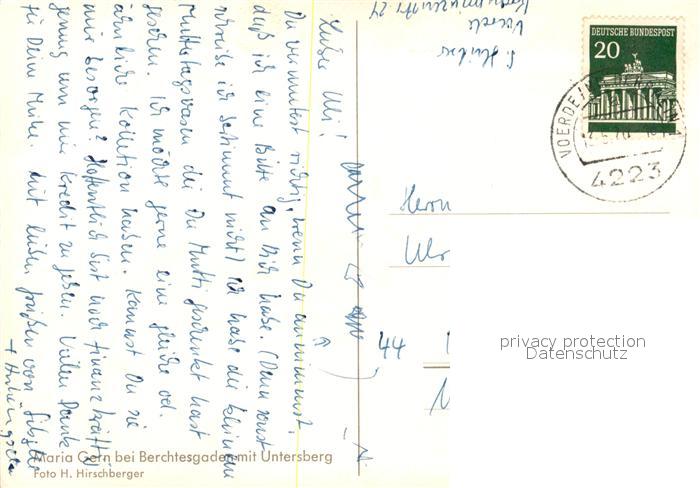 Lieber Uli!
Du vermutest richtig, wenn Du annimmst,
daß ich eine Bitte an Dich habe. (Denn sonst
schreibe ich bestimmt nicht) Ich habe die kleinen
Muttitagsvasen die Du Mutti geschenkt hast
gesehen. Ich möchte gerne eine gleiche od.
ähnliche Kollektion haben. Kannst Du sie
mir besorgen? Hoffentlich bist noch finanzkräftig
genug um mir Kredit zu geben. Vielen Dank
für Deine Mühe. Mit lieben Grüßen von
Maria Gern bei Berchtesgaden mit Untersberg
Foto H. Hirschberger
Voerde
24
DEUTSCHE BUNDESPOST
20
VOERDE
4223
Herrn
44
privacy protection
Datenschutz